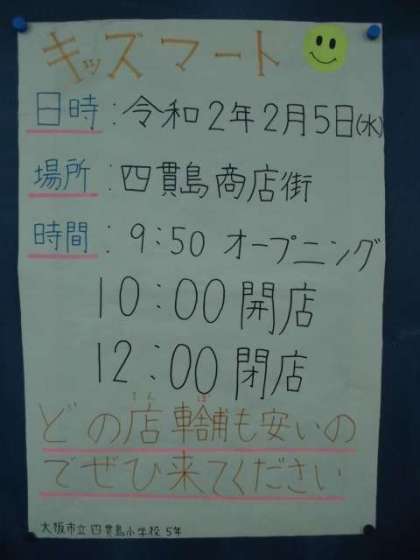 キッズマート
日時：令和2年2月5日(水)
場所：四貫島商店街
時間：9:50 オープニング
10:00 開店
12:00 閉店
どの店舗も安いの
でぜひ来てください
大阪市立四貫島小学校5年